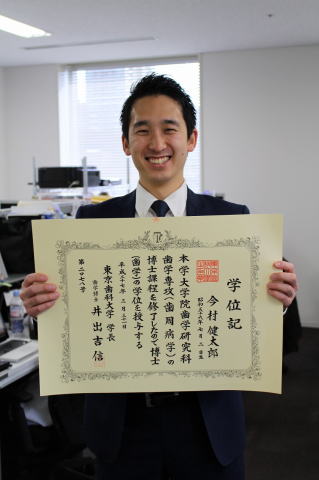 学位記
今村健太郎
昭和五十八年七月二日生
本学大学院歯学研究科
歯学専攻(歯周病学)の
博士課程を修了したので博士
(歯学)の学位を授与する
平成二十七年三月三十一日
東京歯科大学学長
歯学博士 井出吉信